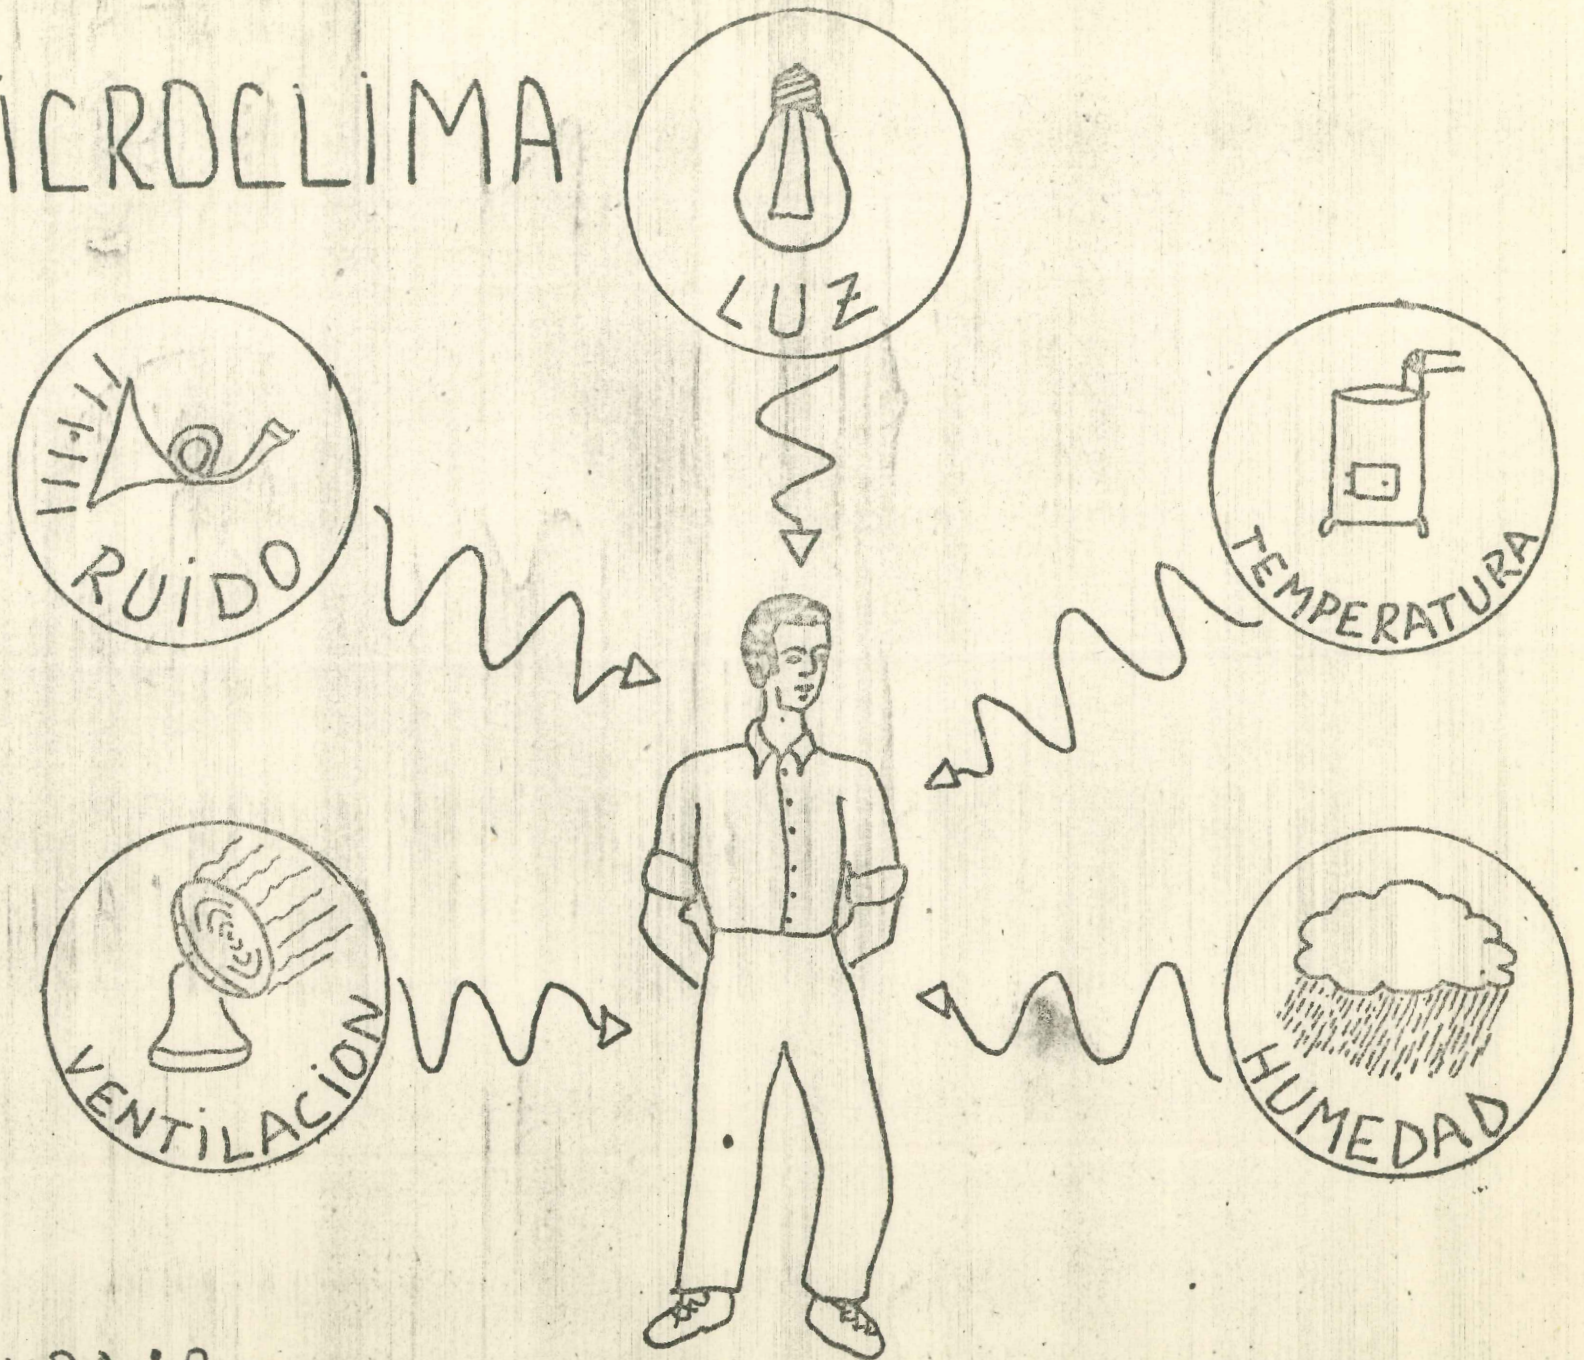 MiCROCLiMA
LUZ
RUiDO
TEMPERATURA
VENTiLACiON
HUMEDAD